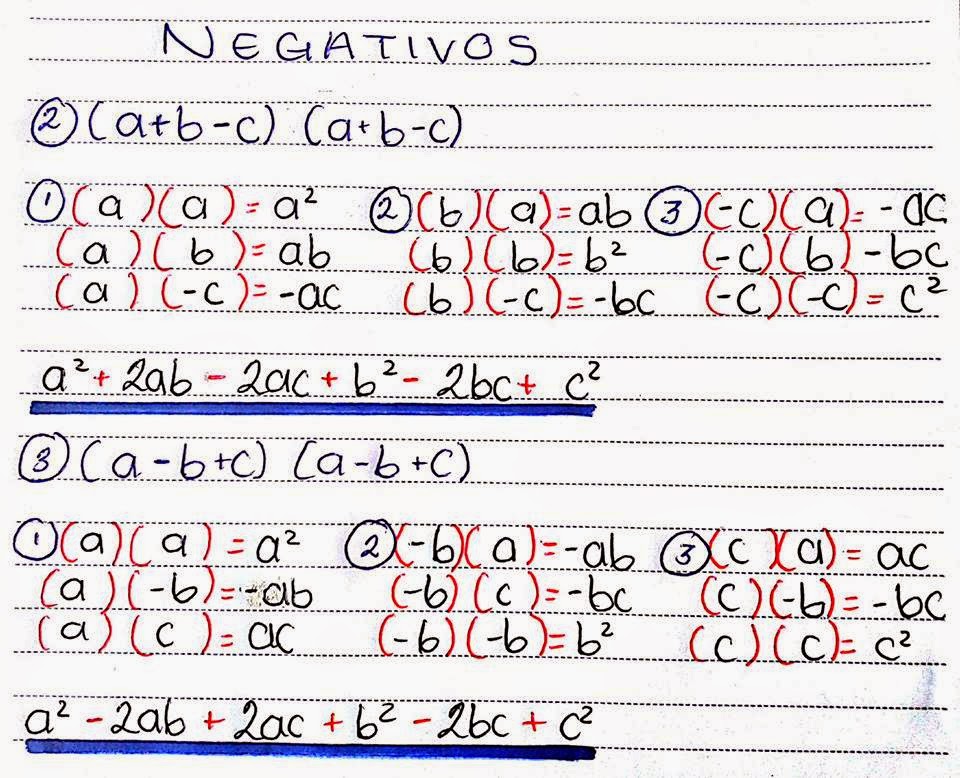 NEGATIVOS
② (a+b-c) (a+b-c)
① (a)(a) = a² ② (b)(a) = ab ③ (-c)(a) = -ac
(a)(b) = ab (b)(b) = b² (-c)(b) -bc
(a)(-c) = -ac (b)(-c) = -bc (-c)(-c) = c²
a² + 2ab - 2ac + b² - 2bc + c²
③ (a-b+c) (a-b+c)
① (a)(a) = a² ② (-b)(a) = -ab ③ (c)(a) = ac
(a)(-b) = -ab (-b)(c) = -bc (c)(-b) = -bc
(a)(c) = ac (-b)(-b) = b² (c)(c) = c²
a² - 2ab + 2ac + b² - 2bc + c²